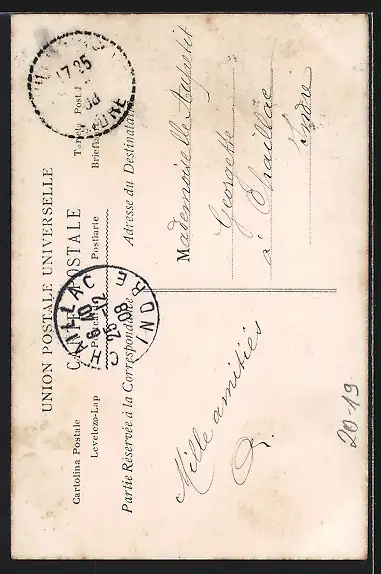 UNION POSTALE UNIVERSELLE
CARTE POSTALE
Cartolina Postale
Levelezo-Lap
Postkarte
Briefkaart
Partie Réservée à la Correspondance
Adresse du Destinataire
CHAILLAC
6-40
26-12
08
INDRE
17-25
08
INDRE
Mille amitiés
Mademoiselle Aupetit
Georgette
à Chaillac
Indre
20-19